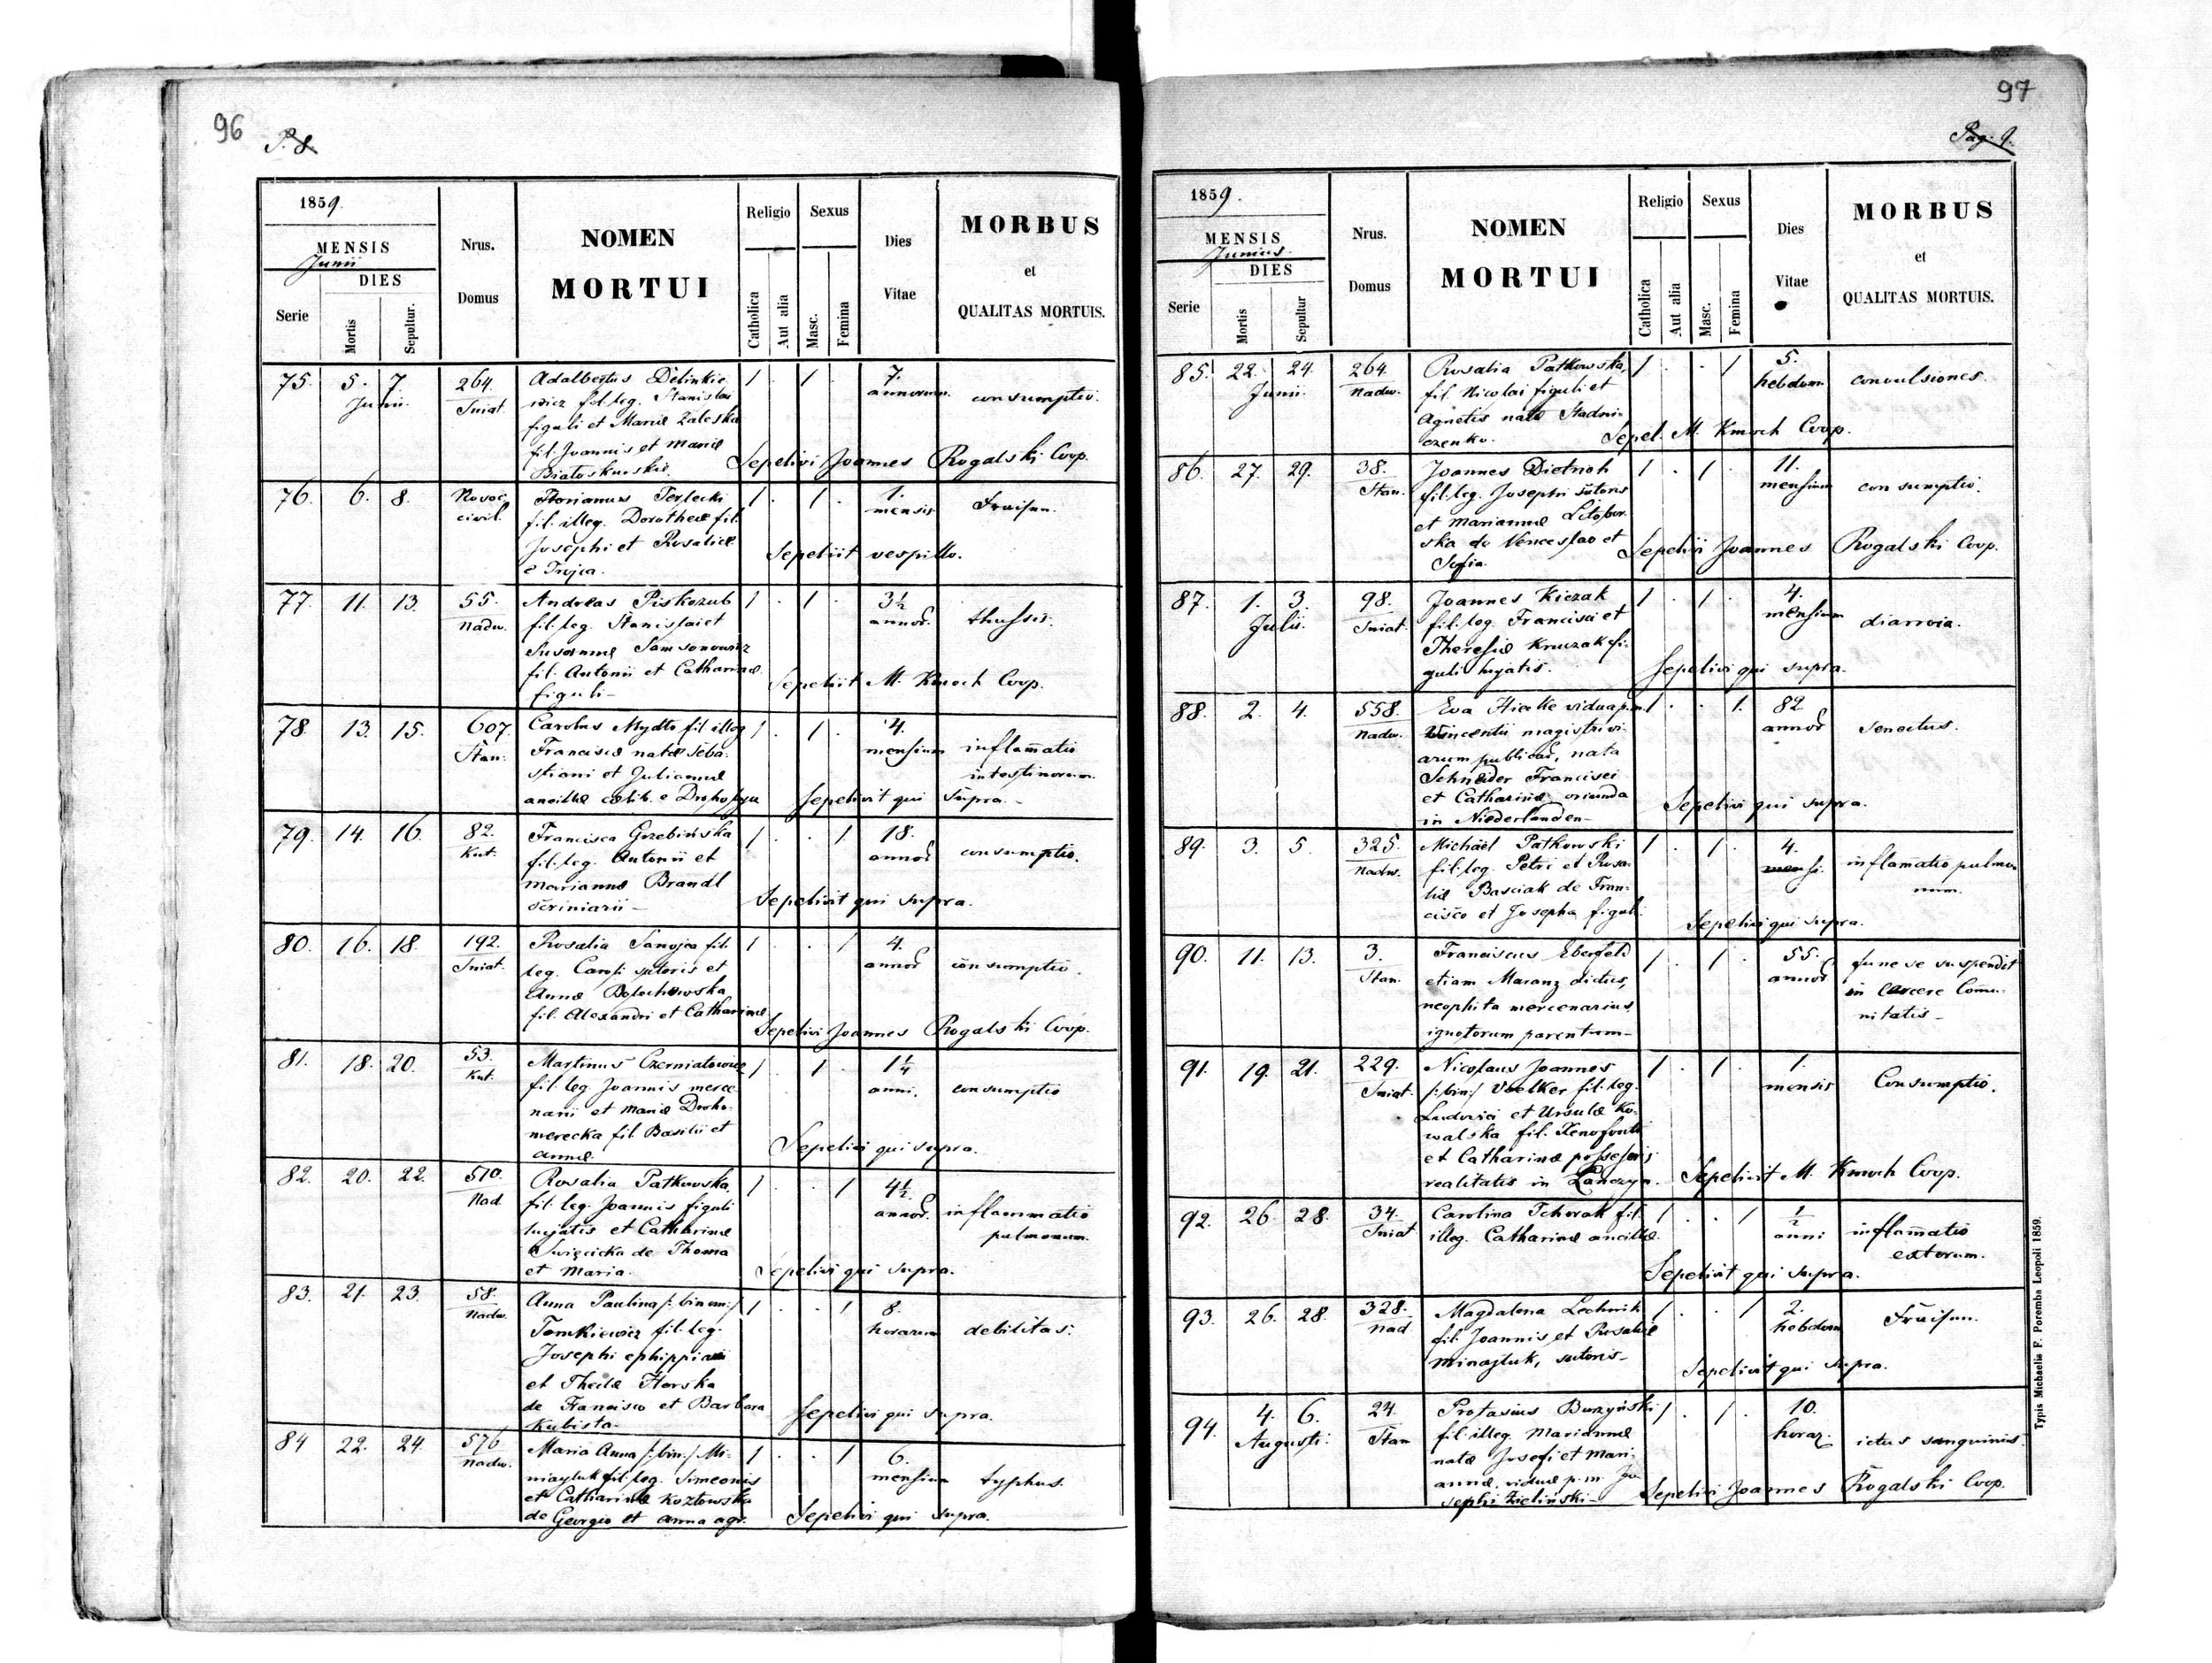 96
P. 8
1859.
MENSIS
Junii
DIES
Serie
Mortis
Sepultur.
Nrus.
Domus
NOMEN
MORTUI
Religio
Catholica
Aut alia
Sexus
Masc.
Femina
Dies
Vitae
MORBUS
et
QUALITAS MORTUIS.
75. 5. 7. 264. Adalbertus Delinkie 1 . 1 . 7.
Junii. Sniat. wicz fil. leg. Stanislai annorum. consumptio.
figuli et Mariæ Zaleska
fil. Joannis et Mariæ
Sepelivi Joannes Rogalski Coop.
76. 6. 8. Novoc. Florianus Terlecki 1 . 1 . 1. Fraisen.
civil. fil. illeg. Dorotheæ fil. mensis
Josephi et Rosaliæ
Sepeliit vespillo.
77. 11. 13. 55. Andreas Piskozub 1 . 1 . 3½
Nadw. fil. leg. Stanislai et annor. thussis.
Susannæ Samsonowicz
fil. Antonii et Catharinæ
figuli – Sepeliit M. Kmoch Coop.
78. 13. 15. 607. Carolus Mydło fil. illeg 1 . 1 . 4.
Stan. Franciscæ natæ Seba- mensium inflamatio
stiani et Juliannæ intestinorum.
ancillæ cælib. e Sepelivit qui Supra. –
79. 14. 16. 82. Francisca Grzebińska 1 . . 1 18.
Kut. fil. leg. Antonii et annor consumptio.
Mariannæ Brandl
scriniarii – Sepelivit qui supra.
80. 16. 18. 192. Rosalia Sanojca fil. 1 . . 1 4.
Sniat. leg. Caroli sutoris et annor consumptio.
Annæ Bołochowska
fil. Alexandri et Catharinæ
Sepelivi Joannes Rogalski Coop.
81. 18. 20. 53. Martinus Czerniatowicz 1 . 1 . 1¼
Kut. fil. leg Joannis merce- anni. consumptio
narii et Mariæ Droho-
merecka fil. Basilii et
Annæ. Sepelivi qui supra.
82. 20. 22. 510. Rosalia Patkowska 1 . . 1 4½
Nad. fil. leg. Joannis figuli annor. inflammatio
hujatis et Catharinæ pulmonum.
Święcicka de Thoma
et Maria. Sepelivi qui supra.
83. 21. 23. 58. Anna Paulina /: binom: / 1 . . 1 8.
Nadw. Tomkiewicz fil. leg. horarum debilitas.
Josephi ephippiarii
et Theclæ Horska
de Francisco et Barbara
Kubista – Sepelivi qui supra.
84 22. 24. 576. Maria Anna /: bin: / Mi- 1 . . 1 6.
Nadw. najluk fil. leg. Simeonis mensium typhus.
et Catharinæ Kozłowska
de Georgio et Anna agr. Sepelivi qui supra.
97
Pag. 9.
1859.
MENSIS
Junius.
DIES
Serie
Mortis
Sepultur
Nrus.
Domus
NOMEN
MORTUI
Religio
Catholica
Aut alia
Sexus
Masc.
Femina
Dies
Vitae
MORBUS
et
QUALITAS MORTUIS.
85. 22. 24. 264. Rosalia Patkowska, 1 . . 1 5.
Junii. Nadw. fil. Nicolai figuli et hebdom. convulsiones.
Agnetis natæ Stadni-
czenko. Sepel. M. Kmoch Coop.
86. 27. 29. 38. Joannes Dietrich 1 . 1 . 11.
Stan. fil. leg. Josephi sutoris mensium consumptio.
et Mariannæ Litobor-
ska de Venceslao et
Sofia. Sepelivi Joannes Rogalski Coop.
87. 1. 3. 98. Joannes Kiczak 1 . 1 . 4.
Julii. Sniat. fil. leg. Francisci et mensium diarroia.
Theresiæ Kruczak fi-
guli hujatis. Sepelivi qui supra.
88. 2. 4. 558. Eva Hielle vidua p.m. 1 . . 1. 82.
Nadw. Vincentii magistri vi- annor senectus.
arum publicar, nata
Schneider Francisci
et Catharinæ oriunda
in Niederlanden – Sepelivi qui supra.
89. 3. 5. 325. Michael Patkowski 1 . 1 . 4.
Nadw. fil. leg. Petri et Rosa- inflamatio pulmo
liæ Basciak de Fran- num.
cisco et Josepha figuli.
Sepelivi qui supra.
90. 11. 13. 3. Franciscus Eberfeld 1 . 1 . 55. fune se suspendit
Stan. etiam Maranz dictus, annor in Carcere Comu-
neophita mercenarius, nitatis –
ignotorum parentum –
91. 19. 21. 229. Nicolaus Joannes 1 . 1 . 1.
Sniat. /: bin: / Voelker fil. leg. mensis Consumptio.
Ludovici et Ursulæ Ko-
walska fil. Xenofonti
et Catharinæ possessoris
realitatis in Łanczyn. Sepelivit M. Kmoch Coop.
92. 26. 28. 34. Carolina Tchorak fil. 1 . . 1 ½
Sniat illeg. Catharinæ ancillæ. anni inflamatio
extorum.
Sepelivit qui supra.
93. 26. 28. 328. Magdalena Lechnik 1 . . 1 2.
Nad fil. Joannis et Rosaliæ hebdom Fraisen.
Minajluk, sutoris –
Sepelivit qui supra.
94. 4. 6. 24. Protasius Burzyński 1 . 1 . 10.
Augusti. Stan fil. illeg. Mariannæ horar. ictus sanguinis.
natæ Josefi et Mari-
annæ, viduæ p.m. Jo-
sephi Zieliński – Sepelivi Joannes Rogalski Coop.
Typis Michaelis F. Poremba Leopoli 1859.